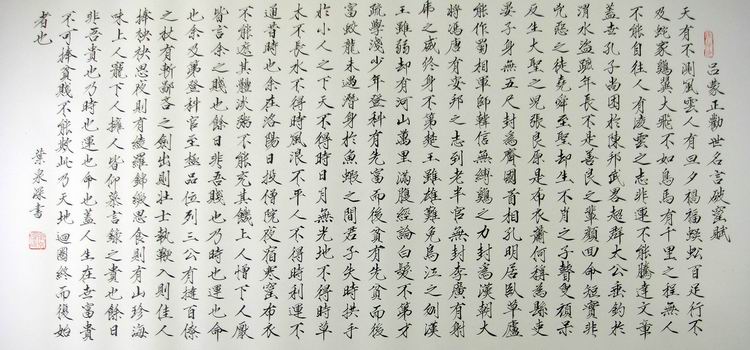 呂蒙正勸世名言破窰賦
天有不測風雲人有旦夕禍福蜈蚣百足行不
及蛇家鷄翼大飛不如鳥馬有千里之程無人
不能自往人有凌雲之志非運不能騰達文章
蓋世孔子尚困於陳邦武畧超群太公垂釣於
渭水盜跖年長不是善良之輩顏回命短實非
兇惡之徒堯舜至聖却生不肖之子瞽叟頑呆
反生大聖之兒張良原是布衣蕭何稱為縣吏
晏子身無五尺封為齊國首相孔明居臥草廬
能作蜀相軍師韓信無縛鷄之力封為漢朝大
將馮唐有安邦之志到老半官無封李廣有射
虎之威終身不第楚王雖雄難免烏江之刎漢
王雖弱却有河山萬里滿腹經論白髮不第才
疏學淺少年登科有先富而後貧有先貧而後
富蛟龍未遇潛身於魚蝦之間君子失時拱手
於小人之下天不得時日月無光地不得時草
木不長水不得時風浪不平人不得時利運不
通昔時也余在洛陽日投僧院夜宿寒窰布衣
不能遮其體淡粥不能充其饑上人憎下人厭
皆言余之賤也余曰非吾賤也乃時也運也命
也余及第登科官至極品位列三公有撻百僚
之杖有斬鄙吝之劍出則壯士執鞭入則佳人
捧袂思衣則有綾羅錦緞思食則有山珍海
味上人寵下人擁人皆仰慕言余之貴也余曰
非吾貴也乃時也運也命也蓋人生在世富貴
不可捧貧賤不能欺此乃天地迴圈終而復始
者也
葉泉書